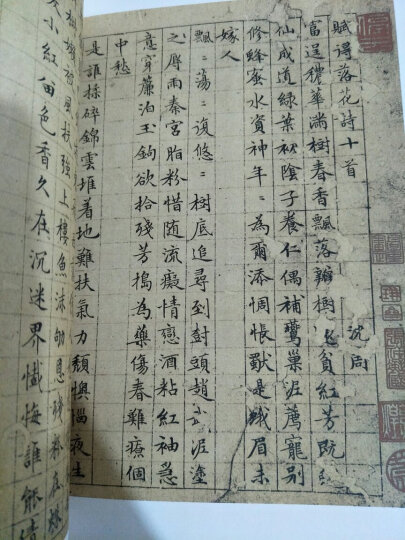 賦得落花詩十首
沈周
富逞穠華滿樹春香飄落瓣樹貧紅芳既
仙成道綠葉初陰子養仁偶補鶯巢泥薦寵別
修蜂蜜水資神年〻為爾添惆悵獸是娥眉未
嫁人
飄〻蕩〻復悠〻樹底追尋到封頭趙泥塗
之屑雨秦宮脂粉惜随流癡情戀酒粘紅袖急
意穿簾泊玉鉤欲拾殘芳搗為藥傷春難療個
中愁
是誰揉碎錦雲堆着地難扶氣力頹懊惱夜生
風扶强上樓魚沫恩殘粉在
小紅留色香久在沉迷界懺悔誰能